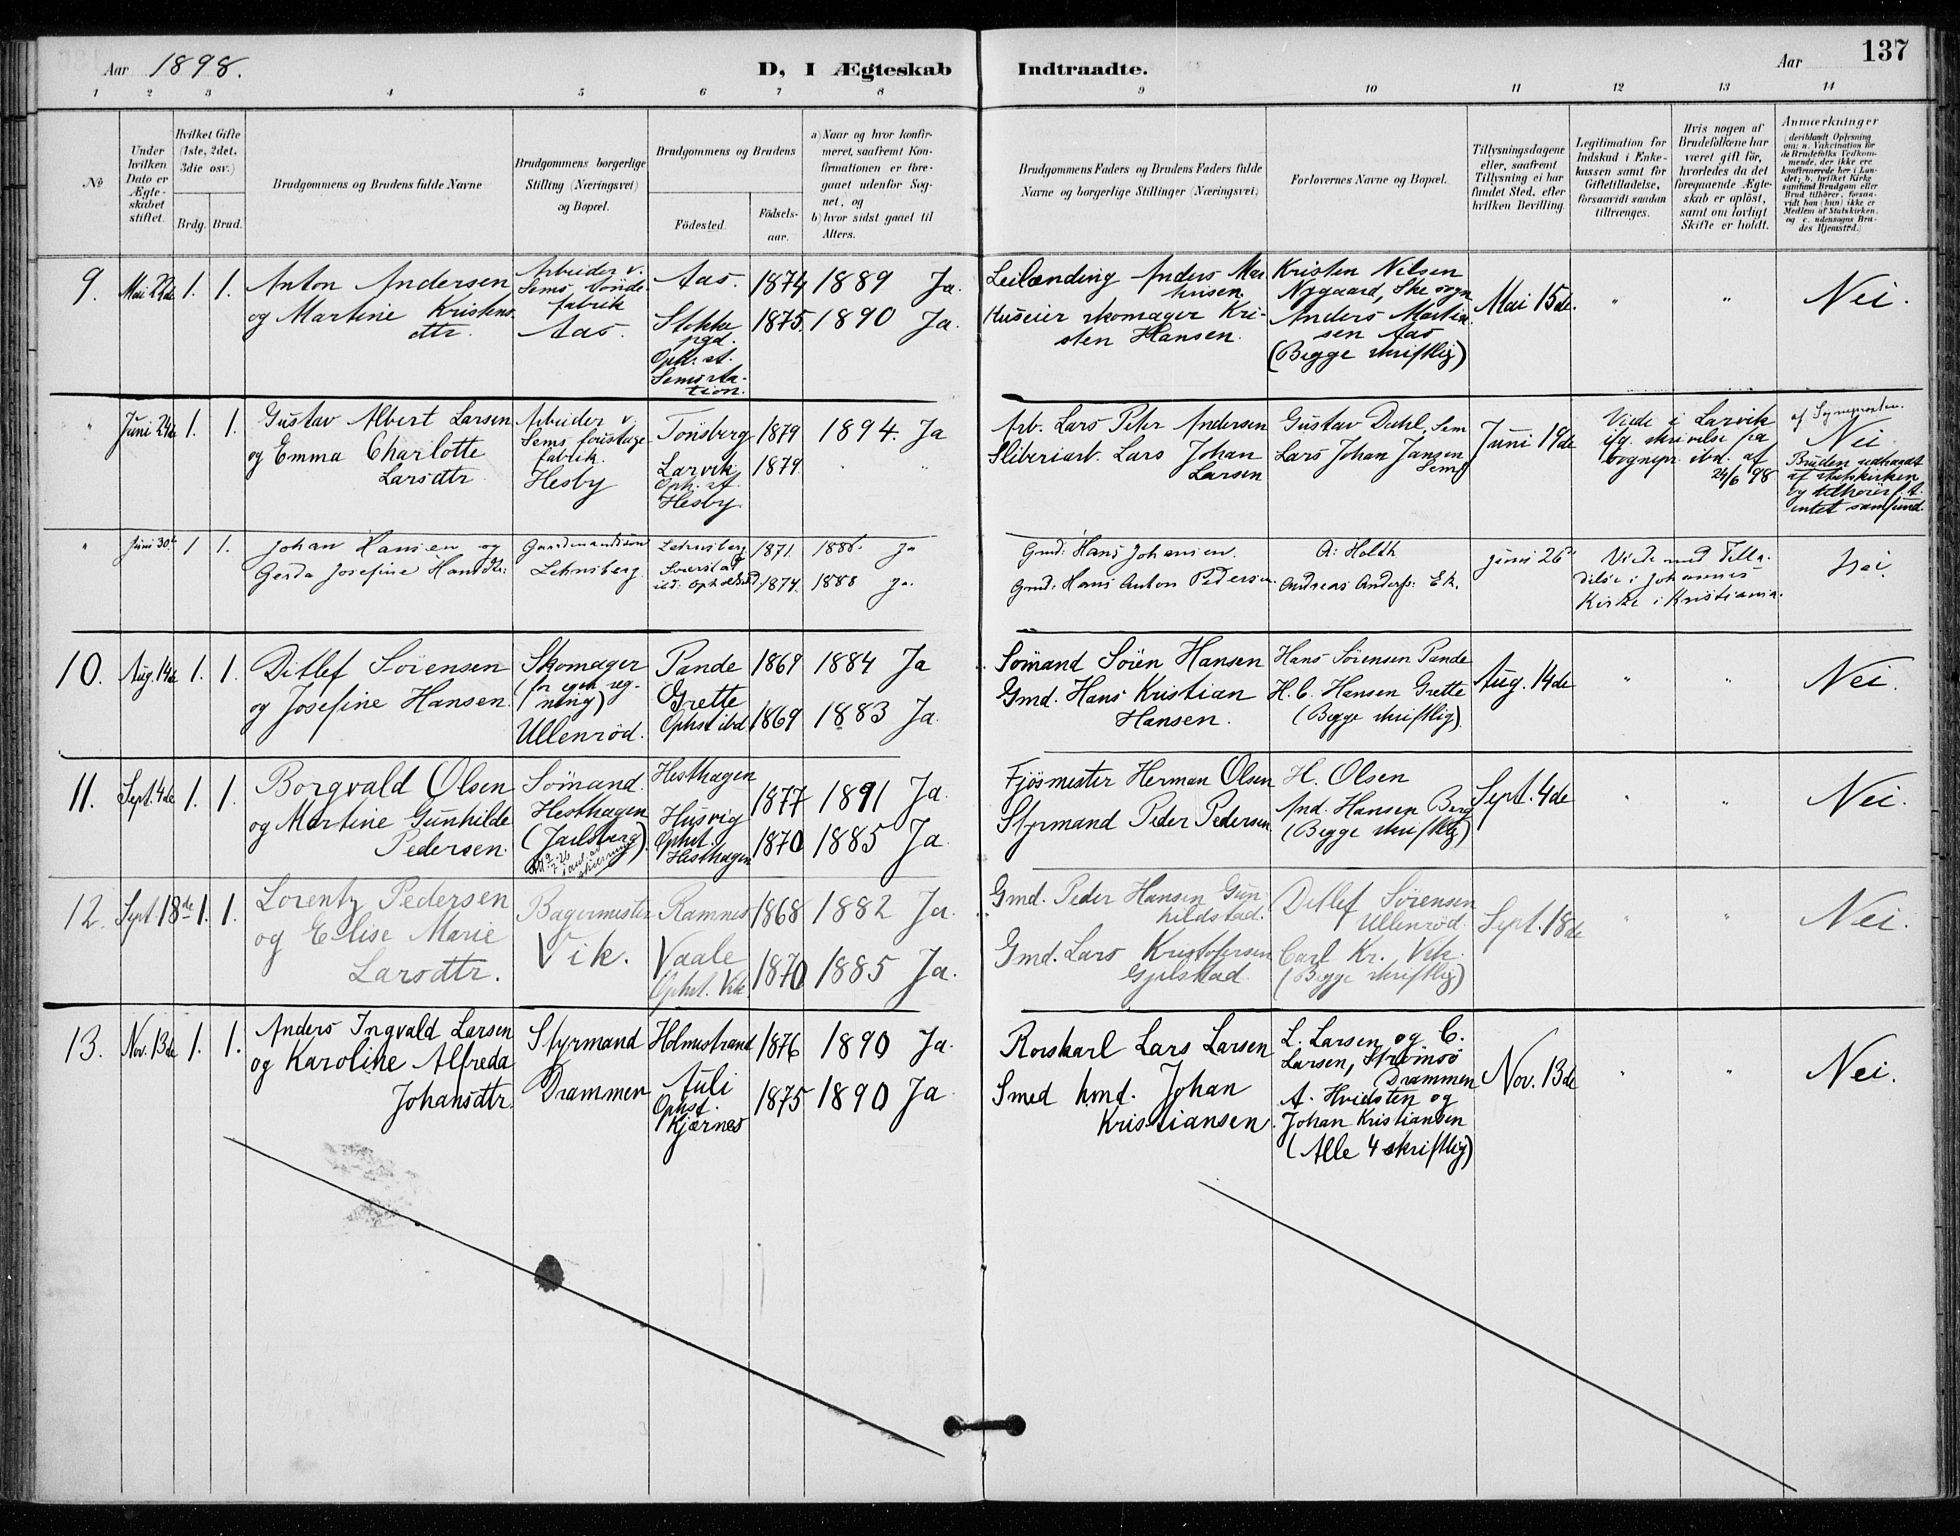 Aar 1898.
D, I Ægteskab
Indtraadte.
Aar
137
1 2 3 4 5 6 7 8 9 10 11 12 13 14
No
Under hvilken Dato er Ægteskabet stiftet.
Hvilket Gifte (1ste, 2det, 3die osv.)
Brdg. Brud.
Brudgommens og Brudens fulde Navne
Brudgommens borgerlige Stilling (Næringsvei) og Bopæl.
Brudgommens og Brudens
Födested.
Födsels-aar.
a) Naar og hvor konfirmeret, saafremt Konfirmationen er foregaaet udenfor Sognet, og
b) hvor sidst gaaet til Alters.
Brudgommens Faders og Brudens Faders fulde Navne og borgerlige Stillinger (Næringsvei)
Forlovernes Navne og Bopæl.
Tillysningsdagene eller, saafremt Tillysning ei har fundet Sted, efter hvilken Bevilling.
Legitimation for Indskud i Enkekassen samt for Giftetilladelse, forsaavidt saadan tiltrænges.
Hvis nogen af Brudefolkene har været gift før, hvorledes da det foregaaende Ægteskab er opløst, samt om lovligt Skifte er holdt.
Anmærkninger
(deriblandt Oplysning om: a. Vakcination for de Brudefolks Vedkommende, der ikke ere konfirmerede her i Landet; b. hvilket Kirkesamfund Brudgom eller Brud tilhører, forsaavidt han (hun) ikke er Medlem af Statskirken, og c. udensogns Brudes Hjemsted.)
9. Mai 29de 1. 1. Anton Andersen
og Martine Kristensdtr.
Arbeider v.
Sems
fabrik
Aas.
Aas. 1874 1889 Ja.
Stokke pgd. 1875. 1890 Ja.
Oph. st.
Sems station.
Leilænding Anders Martinsen
Huseier skomager Kristen Hansen.
Kristen Nilsen
Nygaard,
Anders Martinsen Aas
(Begge skriftlig)
Mai 15de " " Nei.
" Juni 24de 1. 1. Gustav Albert Larsen
og Emma Charlotte
Larsdtr
Arbeider v.
Sems
fabrik.
Hesby
Tönsberg 1879 1894. Ja
Larvik 1879. " "
Oph. st.
Hesby
Arb. Lars Peter Andersen
Sliberiarb. Lars Johan
Larsen
Gustav Dahl, Sem
Lars Johan Jansen
Sems
Juni 19de
Viede i Larvik
ifg. skrivelse fra
sognepr. ibd. af
24/6 98
Nei
Bruden udtraadt
af statskirken
og tilhører
intet samfund.
" Juni 30te 1 1. Johan Hansen og
Gerda Josefine Hansdtr:
Gaardmandssøn
Lehnsberg
Lehnsberg 1871. 1886. Ja
1874. 1888 Ja.
Gmd: Hans Johansen.
Gmd: Hans Anton Pedersen.
A: Holth
Andreas Anders: Ek.
Juni 26de
Viede med Tilladelse i Johannes
Kirke i Kristiania.
Nei.
10. Aug. 14de 1. 1. Ditlef Sörensen
og Josefine Hansen.
Skomager
(for egen regning)
Ullenröd.
Pande 1869 1884 Ja
Grette
Ophst ibd 1869 1883 Ja.
Sömand Sören Hansen
Gmd. Hans Kristian
Hansen.
Hans Sörensen Pande
H. C. Hansen Grette
(Begge skriftlig).
Aug. 14de " " Nei.
11. Sept. 4de 1. 1. Borgvald Olsen
og Martine Gunhilde
Pedersen.
Sömand.
Hesthagen
(Jarlsberg).
Hesthagen 1877 1891 Ja.
Husvig
Ophst. 1870 1885 Ja.
Hesthagen
Fjösmester Herman Olsen
Styrmand Peder Pedersen
H. Olsen
And. Hansen Berg
(Begge skriftlig)
Sept. 4de " " Nei.
12. Sept. 18de 1. 1. Lorentz Pedersen
og Elise Marie
Larsdtr.
Bagermester
Vik.
Ramnes 1868 1882 Ja.
Vaale 1870 1885 Ja.
Ophst. Vik.
Gmd. Peder Hansen Gunhildstad.
Gmd. Lars Kristofersen
Gjelstad.
Ditlef Sörensen
Ullenröd.
Carl Kr. Vik.
(Begge skriftlig)
Sept. 18de " " Nei.
13. Nov. 13de 1. 1. Anders Ingvald Larsen
og Karoline Alfreda
Johansdtr.
Styrmand
Drammen
Holmestrand 1876 1890 Ja.
Auli 1875 1890 Ja
Ophst.
Kjærnes
Rorskarl Lars Larsen
Smed hmd. Johan
Kristiansen.
L. Larsen og C.
Larsen, Strömsö
Drammen
A. Hvidsten og
Johan Kristiansen
(Alle 4 skriftlig)
Nov. 13de " " Nei.